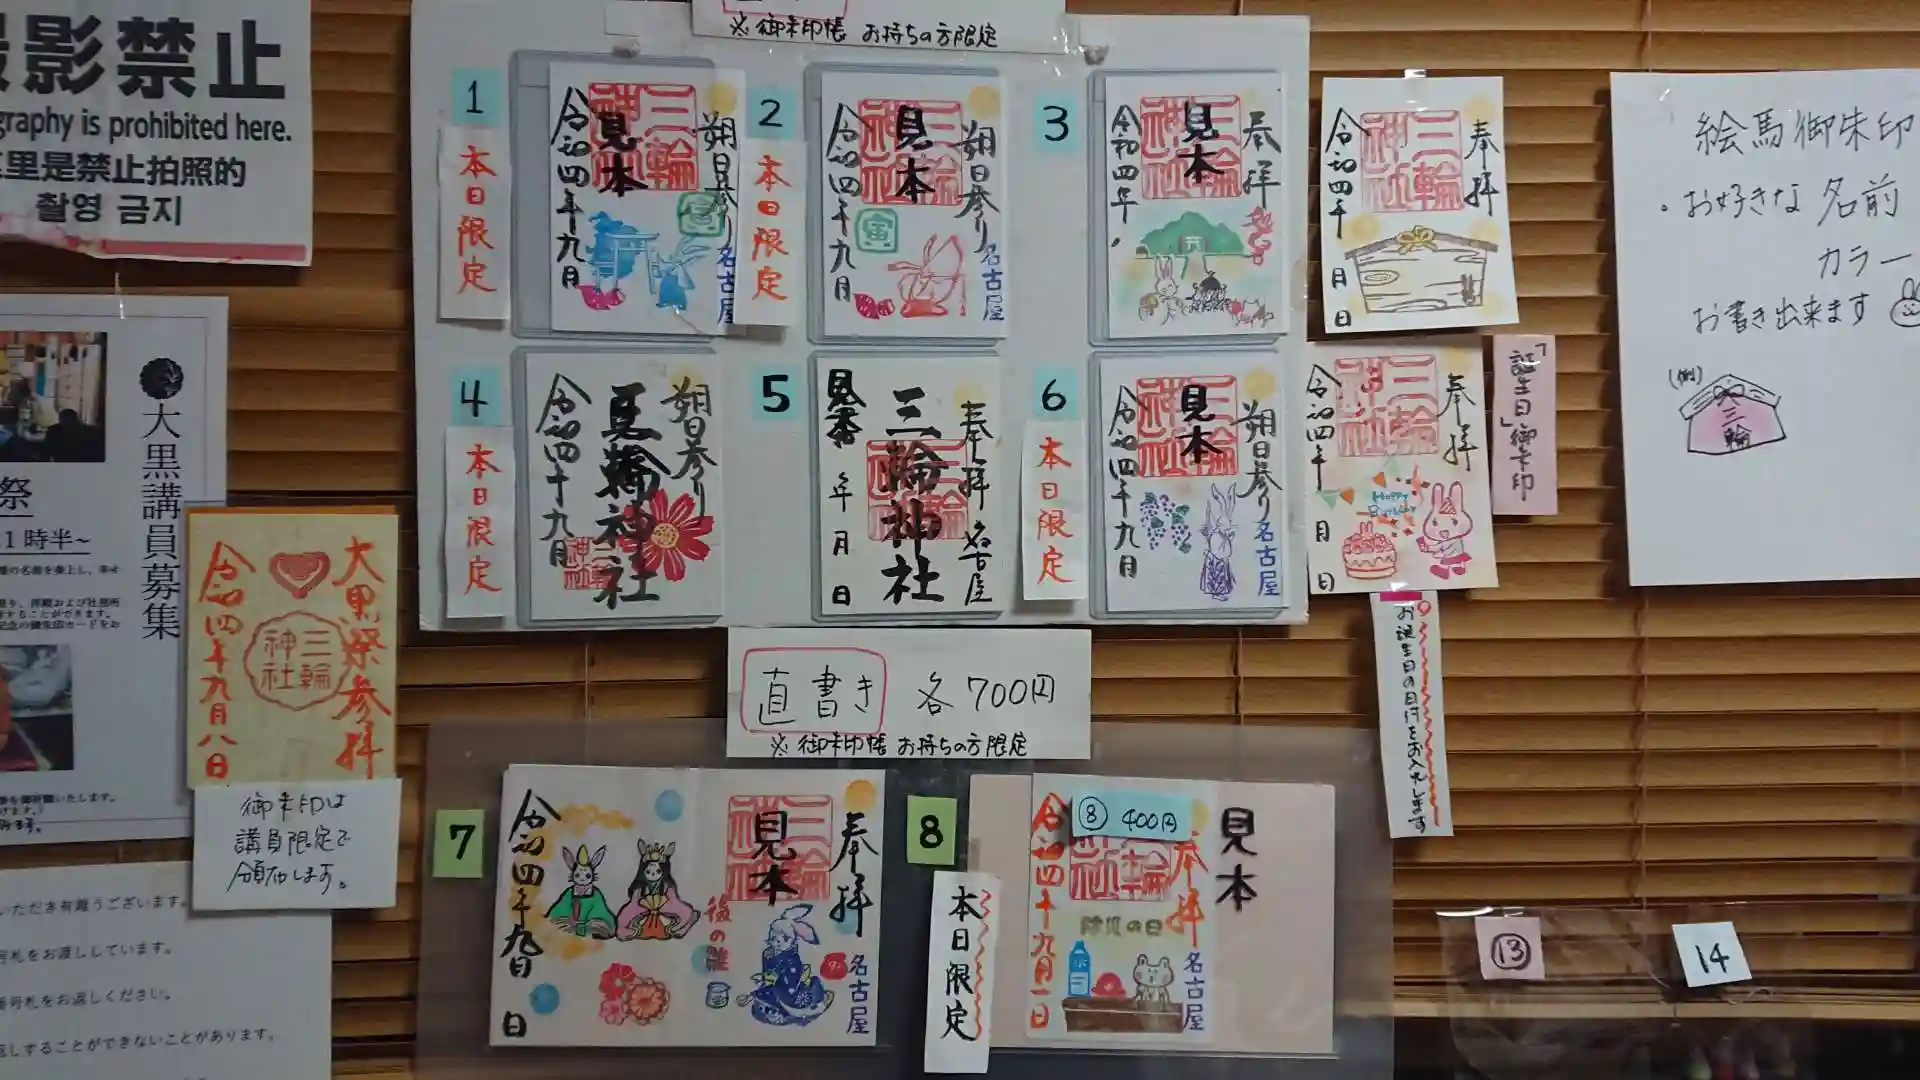 影禁止
graphy is prohibited here.
里是禁止拍照的
촬영 금지
大黒講員募集
祭
1時半~
大黒祭参拝
三輪神社
令和四年九月八日
御朱印は
講員限定で
頒布します。
いただき有難うございます。
号札をお渡ししています。
番号札をお返しください。
返しすることができないことがあります。
※御朱印帳 お持ちの方限定
1
本日限定
朔日参り
三輪神社
見本
令和四年九月
名古屋
2
本日限定
朔日参り
三輪神社
見本
寅
令和四年九月
名古屋
3
奉拝
三輪神社
見本
令和四年
奉拝
三輪神社
令和四年
月 日
4
本日限定
朔日参り
三輪神社
見本
令和四年九月
5
見本
奉拝
三輪神社
名古屋
年 月 日
6
本日限定
朔日参り
三輪神社
見本
令和四年九月
名古屋
奉拝
三輪神社
令和四年
月 日
Happy
Birthday
「誕生日」御朱印
お誕生日の日付をお入れします
絵馬御朱印
・お好きな 名前
カラー
お書き出来ます
(例)
三輪
直書き 各700円
※御朱印帳 お持ちの方限定
7
奉拝
三輪神社
見本
後の雛
令和四年九月
日
名古屋
8
本日限定
⑧ 400円
見本
奉拝
防災の日
令和四年九月一日
名古屋
⑬
14